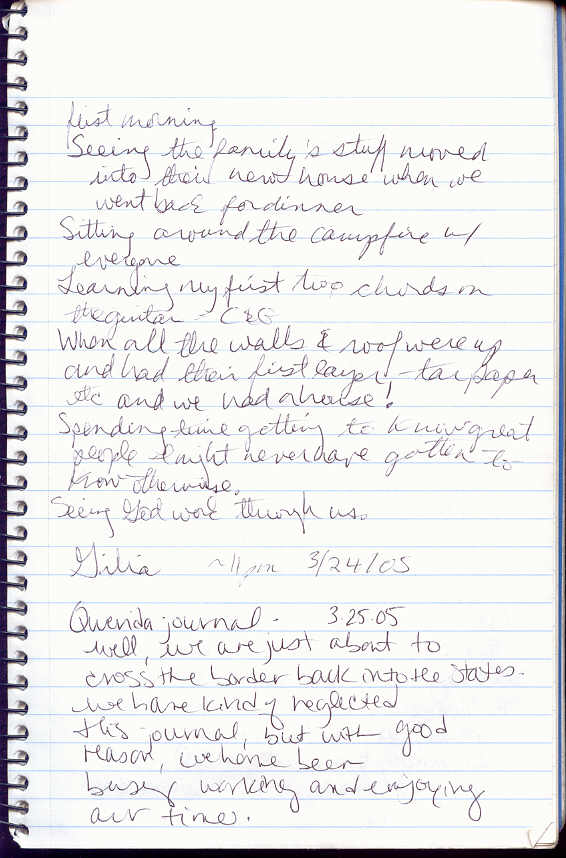 first morning
Seeing the family's stuff moved
into their new house when we
went back for dinner
Sitting around the campfire w/
everyone
Learning my first two chords on
the guitar - C & G
When all the walls & roof were up
and had their first layer - tar paper
etc and we had a house!
Spending time getting to know great
people I might never have gotten to
know otherwise.
Seeing God work through us.
Gilia ~11pm 3/24/05
Querida journal - 3.25.05
well, we are just about to
cross the border back into the states.
we have kind of neglected
this journal, but with good
reason, we have been
busy working and enjoying
our time.